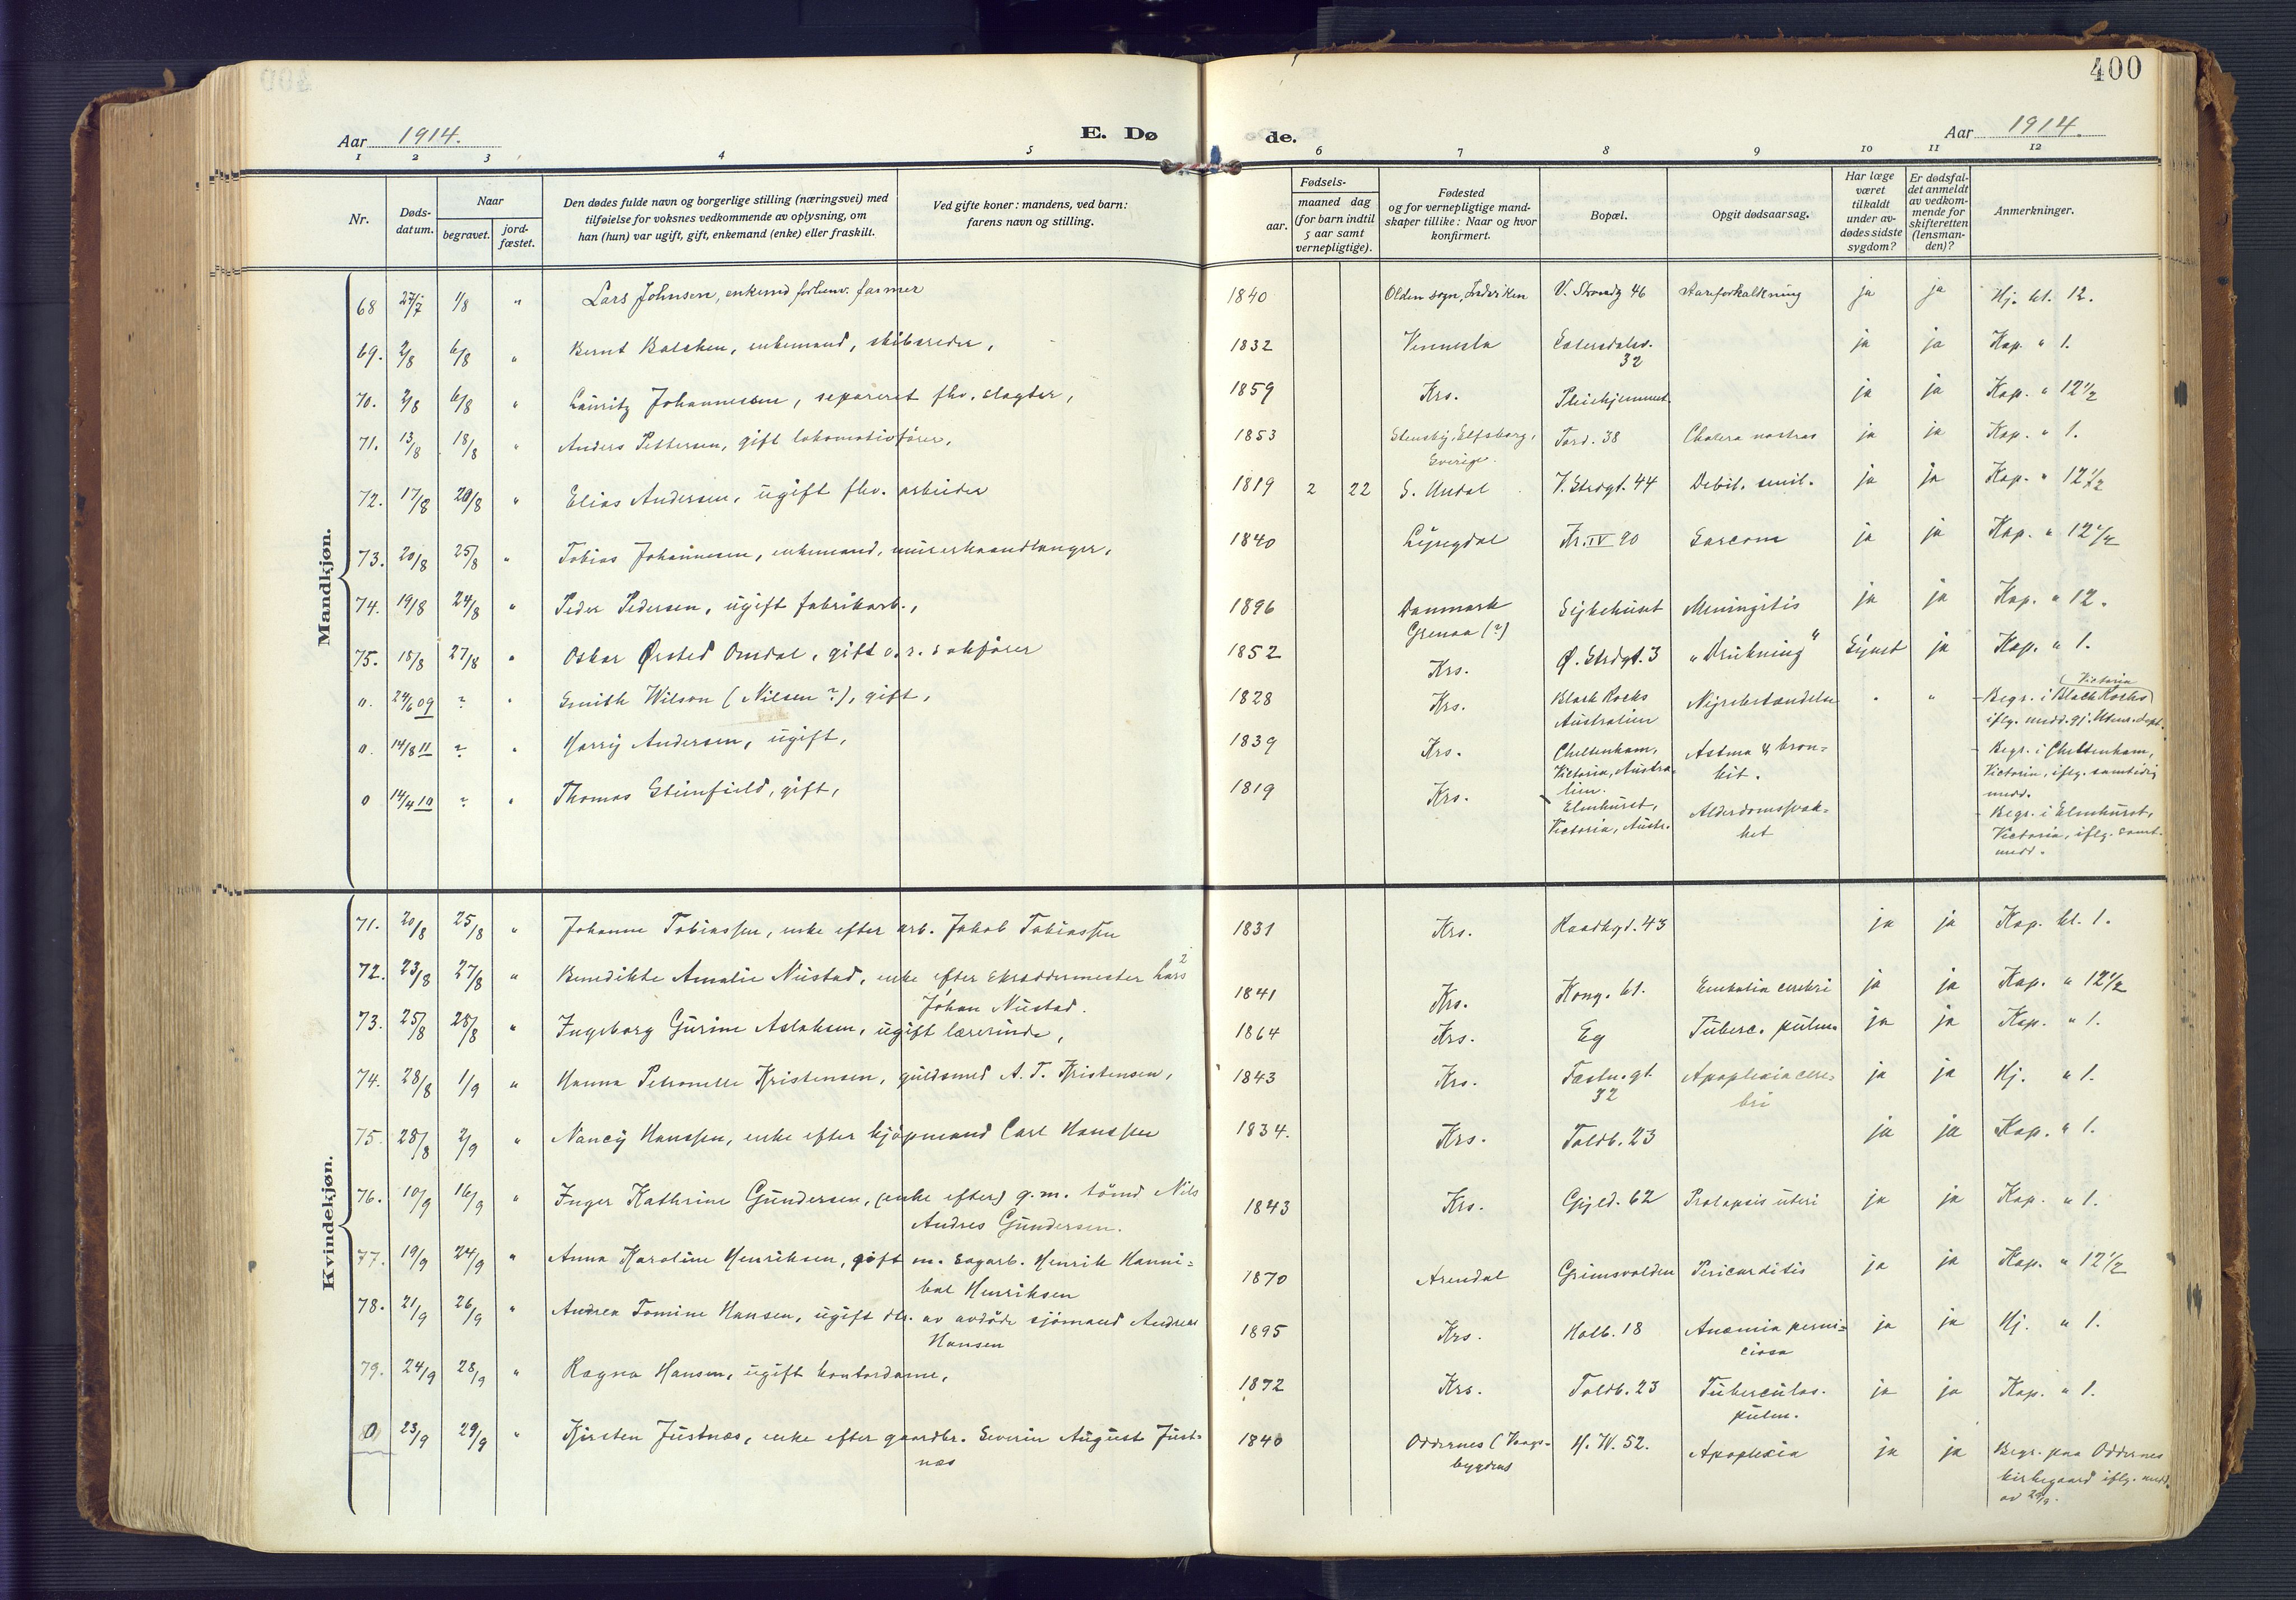 400
Aar 1914. E. Dø de. Aar 1914.
1 2 3 4 5 6 7 8 9 10 11 12
Nr. Døds-datum. Naar begravet. jord-fæstet. Den dødes fulde navn og borgerlige stilling (næringsvei) med tilføielse for voksnes vedkommende av oplysning, om han (hun) var ugift, gift, enkemand (enke) eller fraskilt. Ved gifte koner: mandens, ved barn: farens navn og stilling. Fødsels- aar. maaned dag (for barn indtil 5 aar samt vernepligtige). Fødested og for vernepligtige mand-skaper tillike: Naar og hvor konfirmert. Bopæl. Opgit dødsaarsag. Har læge været tilkaldt under av-dødes sidste sygdom? Er dødsfal-det anmeldt av vedkom-mende for skifteretten (lensman-den)? Anmerkninger.
Mandkjøn.
68 27/7 1/8 " Lars Johnsen, enkemd forhenv. farmer 1840 Olden sogn, Indviken V. Strandg 46 Aareforkalkning ja ja Hj. kl. 12.
69. 2/8 6/8 " Bernt Balchen, enkemand, skibsreder, 1832 Vennesla Sætersdalsv. 32 ja ja Kap. " 1.
70. 2/8 6/8 " Lauritz Johannessen, separeret fhv. slagter, 1859 Krs. Pleiehjemmet. ja ja Kap. " 12 1/2
71. 13/8 18/8 " Anders Pettersen, gift lokomotivfører, 1853 Stensby, Elfsborg, Sverige. Tord. 38 Cholera nostras ja ja Kap. " 1.
72. 17/8 20/8 " Elias Andersen, ugift fhv. arbeider 1819 2 22 S. Undal V. Strdgt. 44 Debil. senil. ja ja Kap. " 12 1/2
73. 20/8 25/8 " Tobias Johannesen, enkemand, murerhaandlanger, 1840 Lyngdal Kr. IV 90 Sarcom ja ja Kap. " 12 1/2
74. 19/8 24/8 " Peder Pedersen, ugift fabrikarb., 1896 Danmark Grenaa (?) Sykehuset Meningitis ja ja Kap. " 12.
75. 18/8 27/8 " Oskar Ørsted Omdal, gift o.r. sakfører 1852 Krs. Ø. Strdgt. 3 "Drukning" Synet ja Kap. " 1.
0. 24/6 09 ? " Smith Wilson (Nilsen?), gift, 1828 Krs. Black Rocks Australien Nyrebetændelse " " Begr. i Black Rocks (Victoria) iflg. medd. gj. Utenr. dept.
0. 14/8 11 ? " Harry Andersen, ugift, 1839 Krs. Cheltenham, Victoria, Austra-lien. Astma & bron-kit. Begr. i Cheltenham, Victoria, iflg. samtidig medd.
0 14/4 10 ? " Thomas Steinfield, gift, 1819 Krs. Elmhurst, Victoria, Austr. Alderdomssvak-het Begr. i Elmhurst, Victoria, iflg. samt. medd.
Kvindekjøn.
71. 20/8 25/8 " Johanne Tobiassen, enke efter arb. Jakob Tobiassen 1831 Krs. Raadhgd. 43 ja ja Kap. kl. 1.
72. 23/8 27/8 " Benedikte Amalie Nustad, enke efter skræddermester Lars Johan Nustad. 1841 Krs. Kong. 61. Emholia cerebri ja ja Kap. " 12 1/2
73. 25/8 28/8 " Ingeborg Gurine Aslaksen, ugift lærerinde, 1864 Krs. Eg Tuberc. pulm. ja ja Kap. " 1.
74. 28/8 1/9 " Hanna Petronelle Kristensen, guldsmed A. T. Kristensen, 1843 Krs. Fæstn. gt. 32 Apoplexia cere-bri ja ja Hj. " 1.
75. 28/8 2/9 " Nancy Hanssen, enke efter kjøpmand Carl Hanssen 1834. Krs. Toldb. 23 ja ja Kap. " 1.
76. 10/9 16/9 " Inger Kathrine Gundersen, (enke efter) g.m. tømd Nils Andres Gundersen. 1843 Krs. Gyld. 62 Prolapsis uteri ja ja Kap. " 1.
77. 19/9 24/9 " Anna Karoline Henriksen, gift m. sagarb. Henrik Hanni-bal Henriksen 1870 Arendal Grimsvolden Pericarditis ja ja Kap. " 12 1/2
78. 21/9 26/9 " Andrea Tomine Hansen, ugift dtr. av avdøde sjømand Andreas Hansen 1895 Krs. Holb. 18 Anæmia perni-ciosa ja ja Hj. " 1.
79. 24/9 28/9 " Ragna Hansen, ugift kontordame, 1872 Krs. Toldb. 23 Tuberculos. pulm. ja ja Kap. " 1.
0 23/9 29/9 " Kirsten Justnæs, enke efter gaardbr. Severin August Just-næs 1840 Oddernes (Vaags-bygden) H. W. 52. Apoplexia ja ja Begr. paa Oddernes kirkegaard iflg. medd. av 29/9.